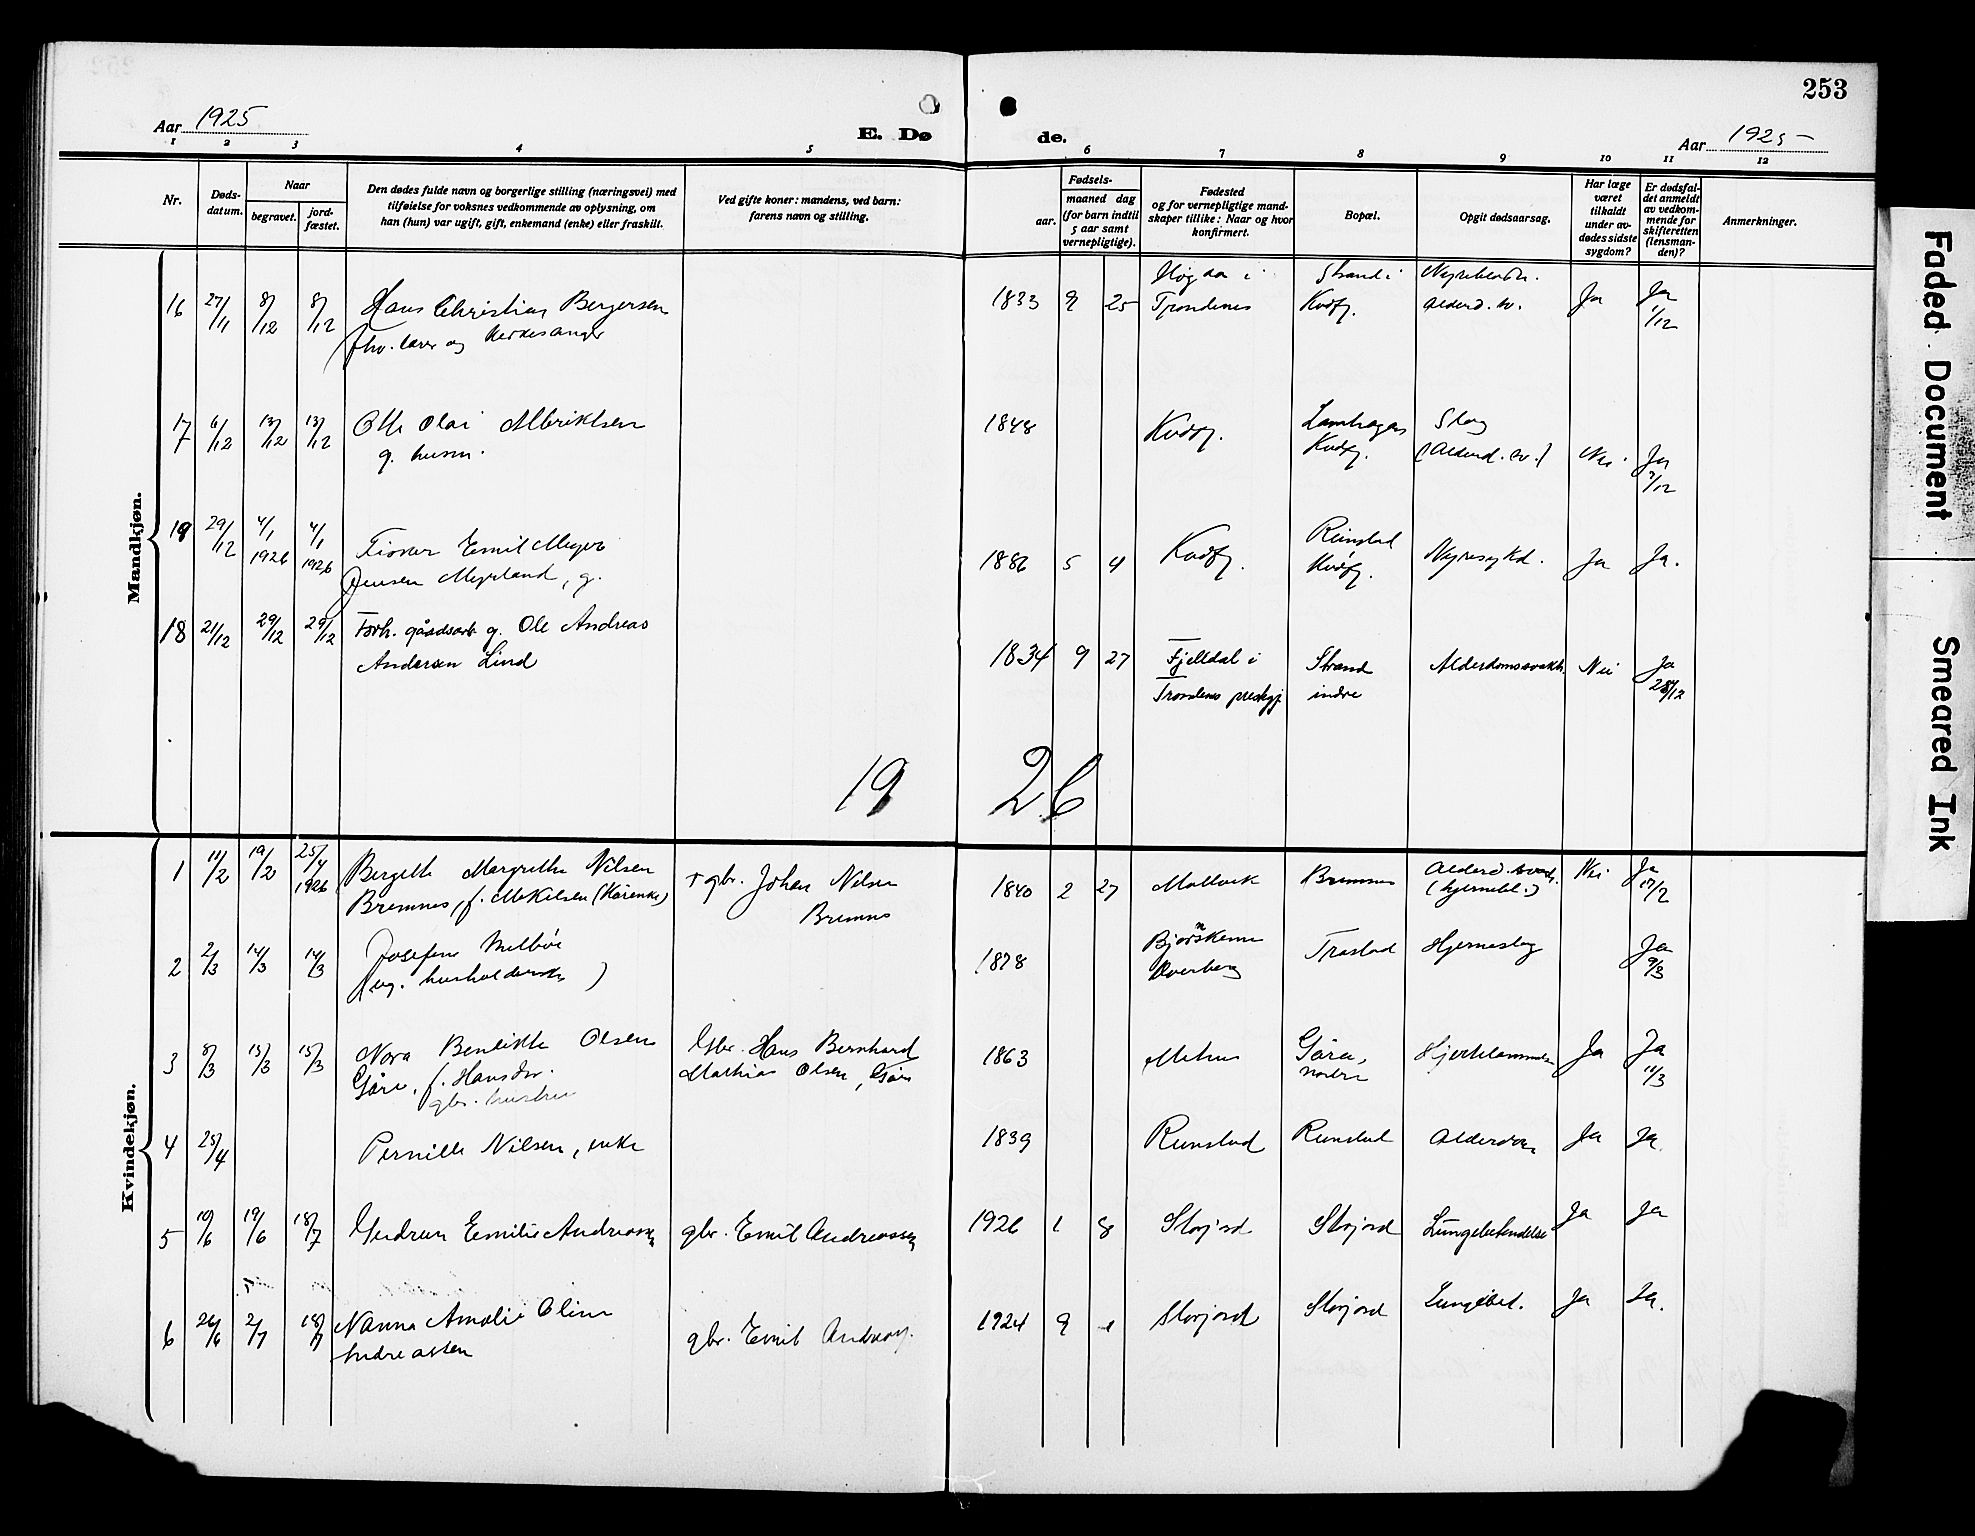 253
Aar 1925
E. Dø de.
Aar 1925
1 2 3 4 5 6 7 8 9 10 11 12
Nr.
Døds-
datum.
Naar
begravet.
jord-
fæstet.
Den dødes fulde navn og borgerlige stilling (næringsvei) med
tilføielse for voksnes vedkommende av oplysning, om
han (hun) var ugift, gift, enkemand (enke) eller fraskilt.
Ved gifte koner: mandens, ved barn:
farens navn og stilling.
Fødsels-
aar.
maaned dag
(for barn indtil
5 aar samt
vernepligtige).
Fødested
og for vernepligtige mand-
skaper tillike: Naar og hvor
konfirmert.
Bopæl.
Opgit dødsaarsag.
Har læge
været
tilkaldt
under av-
dødes sidste
sygdom?
Er dødsfal-
det anmeldt
av vedkom-
mende for
skifteretten
(lensman-
den)?
Anmerkninger.
Mandkjøn.
16 27/11 8/12 8/12 Hans Christian Bergersen
fhv. lærer og kirkesanger
1833 9 25 Trondenes Strand i Kvæfj. alderd. sv. Ja Ja 1/12
17 6/12 13/12 13/12 Olai Albriktsen
g. husm.
1848 Kvæfj. Kvæfj. Slag
(Alderd. sv.) Nei. Ja 7/12
19 29/12 4/1 1926 4/1 1926 Emil Meyer
Jensen Myrland, g.
1886 5 4 Kvæfj. Rinstad
Kvæfj. Nyresykd. Ja Ja.
18 21/12 29/12 29/12 Forh. gårdsarb g. Ole Andreas
Andersen Lind
1834 9 27 Fjelldal i
Trondenes prestgj. Strand
indre Alderdomssvakh. Nei Ja
28/12
19 26
Kvindekjøn.
1 11/2 19/2 25/4 1926 Bergette Margrethe Nilsen
Bremnes, f. Mikkelsen
gbr. Johan Nilsen
Bremnes
1840 2 27 Bremnes Alderd.
(hjernebl.) Nei Ja 17/2
2 2/3 14/3 14/3 Josefine Melbøe
(ug. husholderske)
1878 Kverberg Trastad Hjerneslag Ja
9/3
3 8/3 15/3 15/3 Nora Bendikte Olsen
Gåre, f. Hansdr.
gbr. hustru
Gbr. Hans Bernhard
Mathias Olsen, Gåre
1863 Mehus Gåra,
nordre Hjertelammelse Ja Ja
11/3
4 25/4 Pernille Nilsen, enke
1839 Rinstad Rinstad Alderdom Ja Ja.
5 10/6 19/6 18/7 Gudrun Emilie Andreassen
gbr. Emil Andreassen
1926 1 8 Storjord Storjord Lungebetendelse Ja Ja
6 26/6 2/7 18/7 Nanna Amalie Oline
Andreassen
gbr. Emil Andreass.
1924 9 1 Storjord Storjord Lungebet. Ja Ja.
Faded Document
Smeared Ink